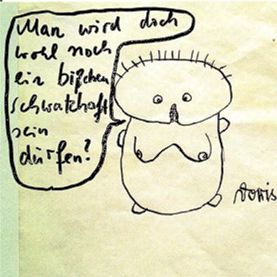 Man wird doch
wohl noch
ein bißchen
schwatzhaft
sein
dürfen?
Doris